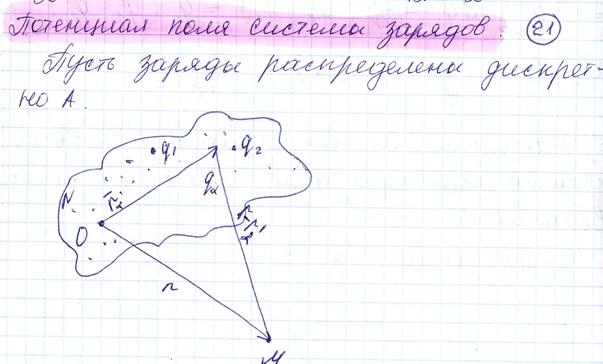 Потенциал поля системы зарядов. 21
Пусть заряды распределены дискрет-
но А.
q₁
q₂
qα
N
r̄α
O
r
M